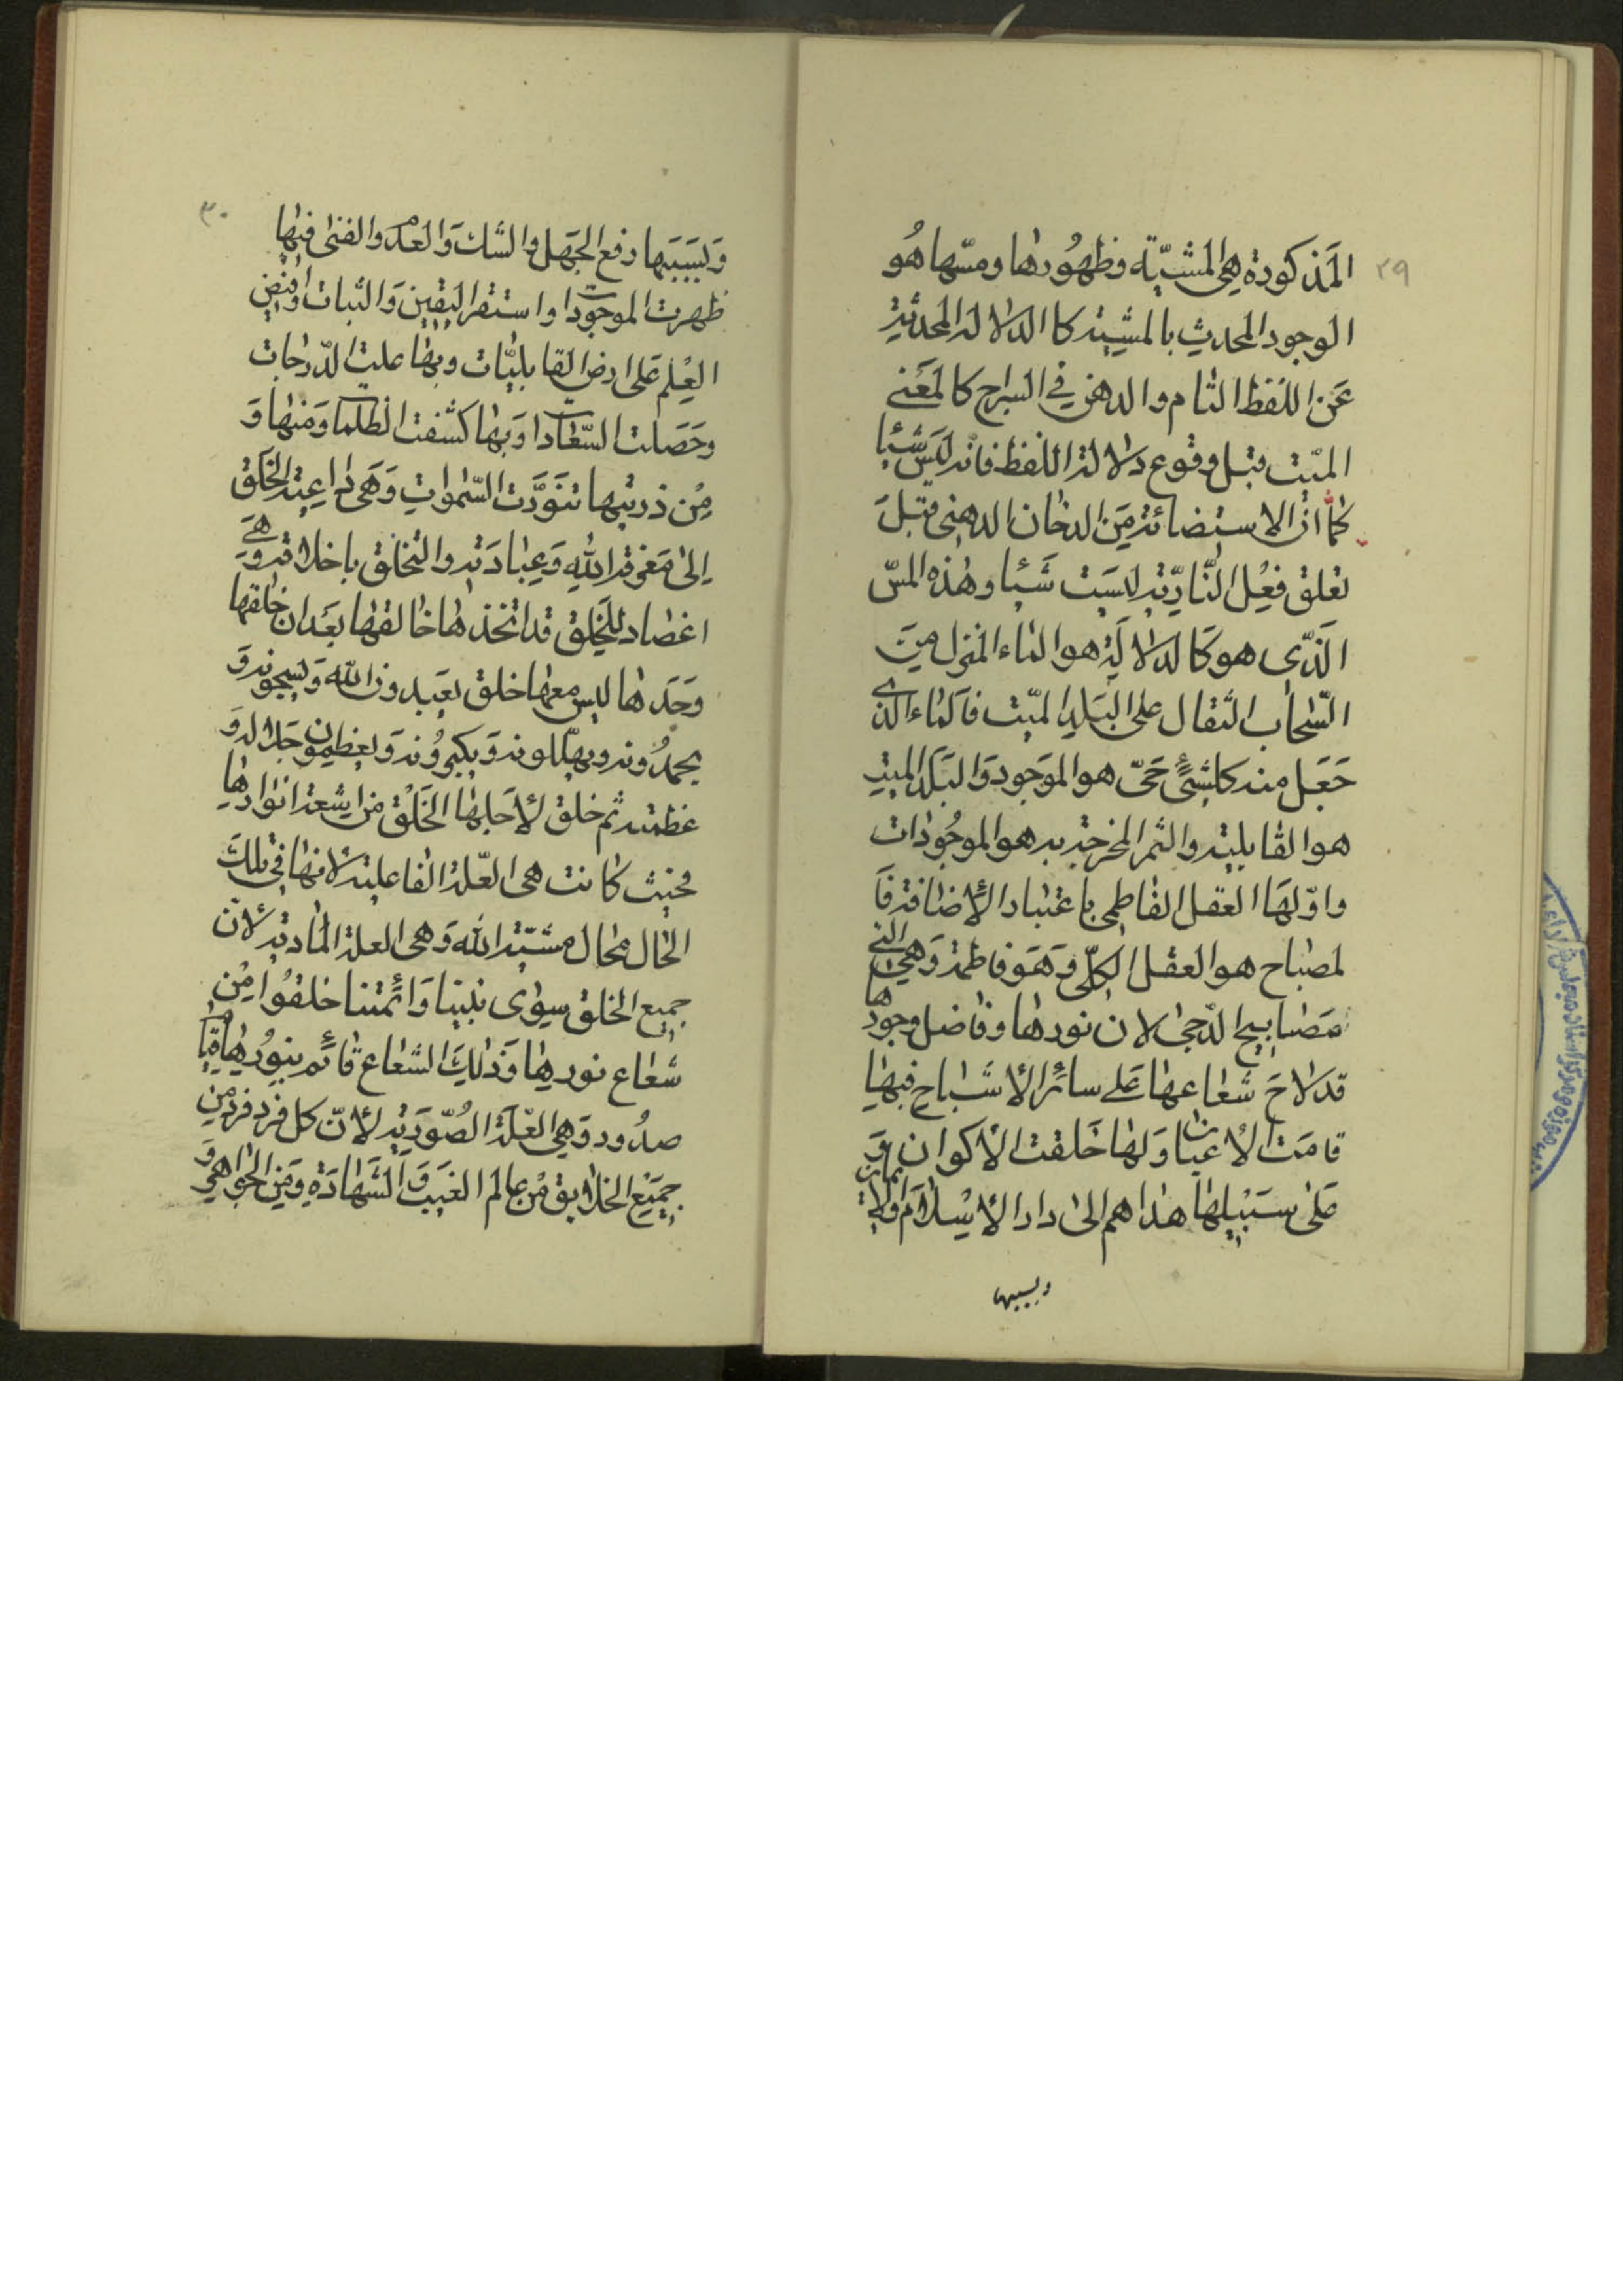 ٢٩
المذكورة هي المشيّة وظهورها ومسّها هُو
الوجود المحدث بالمشية كالدلالة المحدثة
عَن اللفظ التام والدهن في السراج كالمَعْنى
الميّت قبل وقوع دلالة اللفظ فانه ليس شيئا
كما انّ الاستضائة مِن الدخان الدهني قبل
تعلق فِعْل النّاريّة ليسَت شَيئا وهٰذه المسّ
الَّذي هو كالدلالةِ هو الماء المنزل مِن
السّحاب الثقال على البَلدِ الميّت فالماء الذي
جَعَل منه كلشئ حَيّ هو الموجود والبَلَد الميت
هو القابلية والثمر المخرجة به هو الموجُودات
واوّلهَا العقل الفاطمي باعتبار الأضافة فَا
لمصباح هو العقل الكلّي وَهَو فاطمة وَهي التي
مَصابيح الدّجى لان نورها وفاضل وجودها
قد لاحَ شعاعها عَلى سائر الأشباح فبها
قامَت الأعيان وَلها خَلقت الأكوان وَ
عَلى سَبيلها هداهم الى دار الأسْلام
وبسببها
٣٠
وَبسَببها رفع الجَهل والشكّ وَالعَدم والفنى فبها
ظهرت الموجودات واستقر اليقين وَالثبات وافيض
العِلم عَلى ارض القابليّات وبها علت الدّرجات
وحَصَلت السّعادات وَبها كشفت الظلمات وَمنها وَ
مِن ذريتها تنوّرت السّموات وَهي داعية الخَلق
إلى مَعرفة الله وَعِبادَته والتخلق باخلاقه وَ هيَ
اعضاد للخلق قد اتخذها خالقها بَعدَ ان خلقها
وَحَدها ليس معها خلق يَعبدون الله وَيسبّحونه وَ
يحمدُونه ويهلّلونه وَيكبرُونه وَيعظمون جَلاله وَ
عَظمته ثم خلق لأجلها الخَلق من اشعة انوارها
فحينئذ كانت هي العّلة الفاعلية لأنها في تلك
الحال محال مشيّة الله وَهي العلة المادية لأنّ
جميع الخلق سِوى نبينا وَائمتنا خلقُوا مِن
شعاع نورها وَذلِكَ الشعاع قائم بنوُرها قيام
صدُور وَهي العّلة الصُّوريَة لأنّ كل فرد فرد من
جميع الخلايق مِن عالم الغيَب وَالشهَادَة وَمِن الجواهر وَ